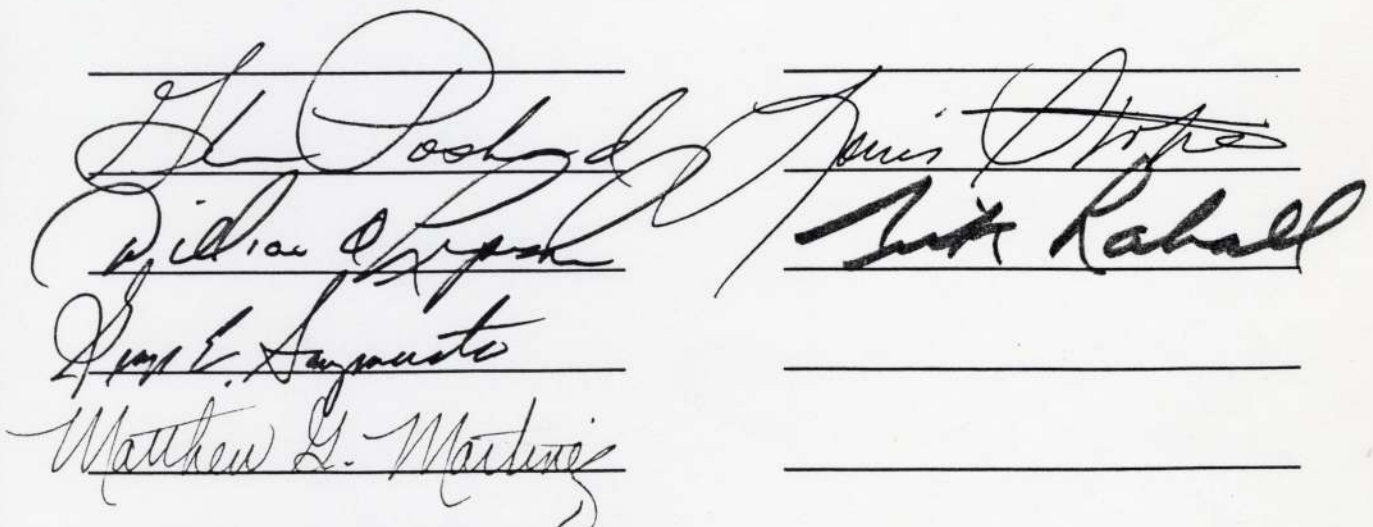 Glenn Poshard
William O. Lipinski
George E. Sangmeister
Matthew G. Martinez
Louis Stokes
Nick Rahall